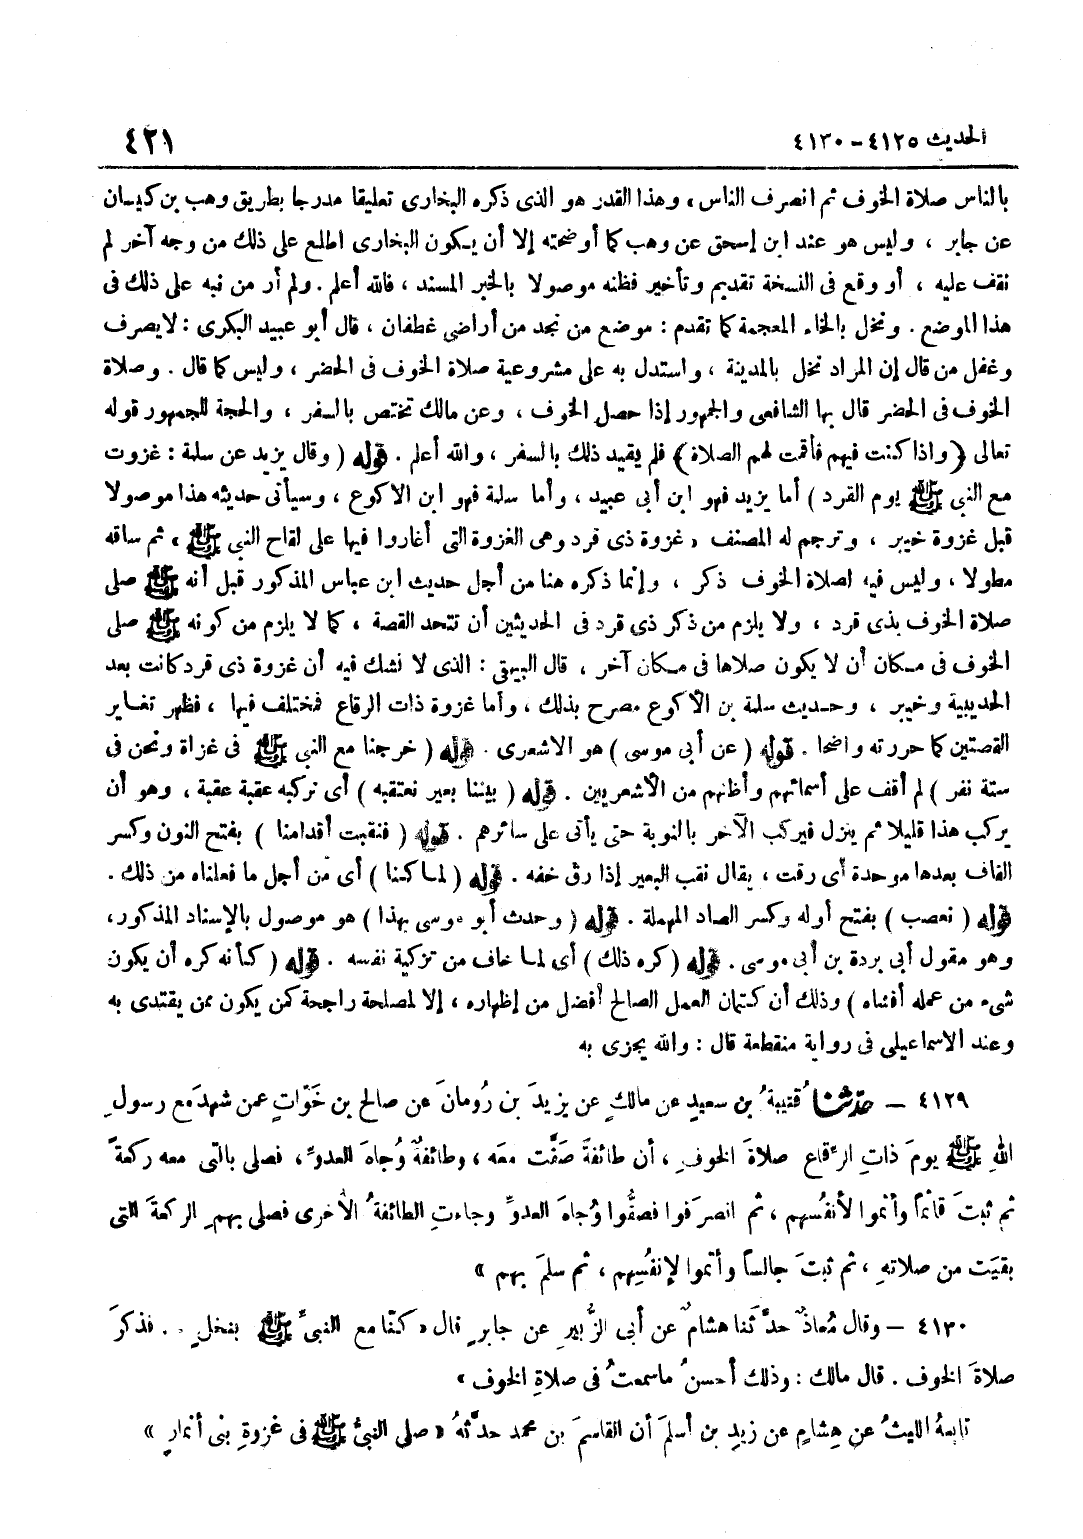 الحديث ٤١٢٥ - ٤١٣٠
٤٢١
بالناس صلاة الخوف ثم انصرف الناس ، وهذا القدر هو الذى ذكره البخارى تعليقا مدرجا بطريق وهب بن كيسان
عن جابر ، وليس هو عند ابن إسحق عن وهب كما أوضحته إلا أن يكون البخارى اطلع على ذلك من وجه آخر لم
نقف عليه ، أو وقع فى النسخة تقديم وتأخير فظنه موصولا بالخبر المسند ، فالله أعلم . ولم أر من نبه على ذلك فى
هذا الموضع . ونخل بالخاء المعجمة كما تقدم : موضع من نجد من أراضى غطفان ، قال أبو عبيد البكرى : لا يصرف
وغفل من قال إن المراد نخل بالمدينة ، واستدل به على مشروعية صلاة الخوف فى الحضر ، وليس كما قال . وصلاة
الخوف فى الحضر قال بها الشافعى والجمهور إذا حصل الخوف ، وعن مالك تختص بالسفر ، والحجة للجمهور قوله
تعالى ﴿ واذا كنت فيهم فأقمت لهم الصلاة ﴾ فلم يقيد ذلك بالسفر ، والله أعلم . قوله ( وقال يزيد عن سلمة : غزوت
مع النبى ﷺ يوم القرد ) أما يزيد فهو ابن أبى عبيد ، وأما سلمة فهو ابن الاكوع ، وسيأتى حديثه هذا موصولا
قبل غزوة خيبر ، وترجم له المصنف « غزوة ذى قرد وهى الغزوة التى أغاروا فيها على لقاح النبى ﷺ » ثم ساقه
مطولا ، وليس فيه لصلاة الخوف ذكر ، وإنما ذكره هنا من أجل حديث ابن عباس المذكور قبل أنه ﷺ صلى
صلاة الخوف بذى قرد ، ولا يلزم من ذكر ذى قرد فى الحديثين أن تتحد القصة ، كما لا يلزم من كونه ﷺ صلى
الخوف فى مكان أن لا يكون صلاها فى مكان آخر ، قال البيهقى : الذى لا نشك فيه أن غزوة ذى قرد كانت بعد
الحديبية وخيبر ، وحديث سلمة بن الأكوع مصرح بذلك ، وأما غزوة ذات الرقاع فمختلف فيها ، فظهر تغاير
القصتين كما حررته واضحا . قوله ( عن أبى موسى ) هو الاشعرى . قوله ( خرجنا مع النبى ﷺ فى غزاة ونحن فى
ستة نفر ) لم أقف على أسمائهم وأظنهم من الأشعريين . قوله ( بيننا بعير نعتقبه ) أى نركبه عقبة عقبة ، وهو أن
يركب هذا قليلا ثم ينزل فيركب الآخر بالنوبة حتى يأتى على سائرهم . قوله ( فنقبت أقدامنا ) بفتح النون وكسر
القاف بعدها موحدة أى رقت ، يقال نقب البعير إذا رق خفه . قوله ( لما كنا ) أى من أجل ما فعلناه من ذلك .
قوله ( نعصب ) بفتح أوله وكسر الصاد المهملة . قوله ( وحدث أبو موسى بهذا ) هو موصول بالإسناد المذكور ،
وهو مقول أبى بردة بن أبى موسى . قوله ( كره ذلك ) أى لما خاف من تزكية نفسه . قوله ( كأنه كره أن يكون
شىء من عمله أفشاه ) وذلك أن كتمان العمل الصالح أفضل من إظهاره ، إلا لمصلحة راجحة كمن يكون ممن يقتدى به
وعند الاسماعيلى فى رواية منقطعة قال : والله يجزى به
٤١٢٩ - حدثنا قتيبةُ بن سعيد عن مالكٍ عن يزيدَ بن رُومانَ عن صالح بن خَوّاتٍ عمن شهدَ مع رسولِ
اللهِ ﷺ يومَ ذاتِ الرِّقاع صلاةَ الخوفِ ، أن طائفةً صَفَّت معَه ، وطائفةٌ وُجاهَ العدوِّ ، فصلى بالتى معه ركعةً
ثم ثبتَ قائماً وأتموا لأنفُسهم ، ثم انصرَفوا فصفُّوا وُجاهَ العدوِّ وجاءتِ الطائفةُ الأخرى فصلى بهم الركعةَ التى
بقيَت من صلاتهِ ، ثم ثبتَ جالساً وأتموا لإنفُسِهم ، ثم سلمَ بهم »
٤١٣٠ - وقال مُعاذٌ حدَّثَنا هشامٌ عن أبى الزُّبير عن جابرٍ قال « كنّا مع النبىِّ ﷺ بنخلٍ . . فذكرَ
صلاةَ الخوف . قال مالك : وذلك أحسنُ ماسمعتُ فى صلاةِ الخوف »
تابعهُ الليثُ عن هِشامٍ عن زيدِ بن أسلمَ أن القاسمَ بن محمد حدَّثهُ « صلى النبىُّ ﷺ فى غزوةِ بنى أنمارٍ »